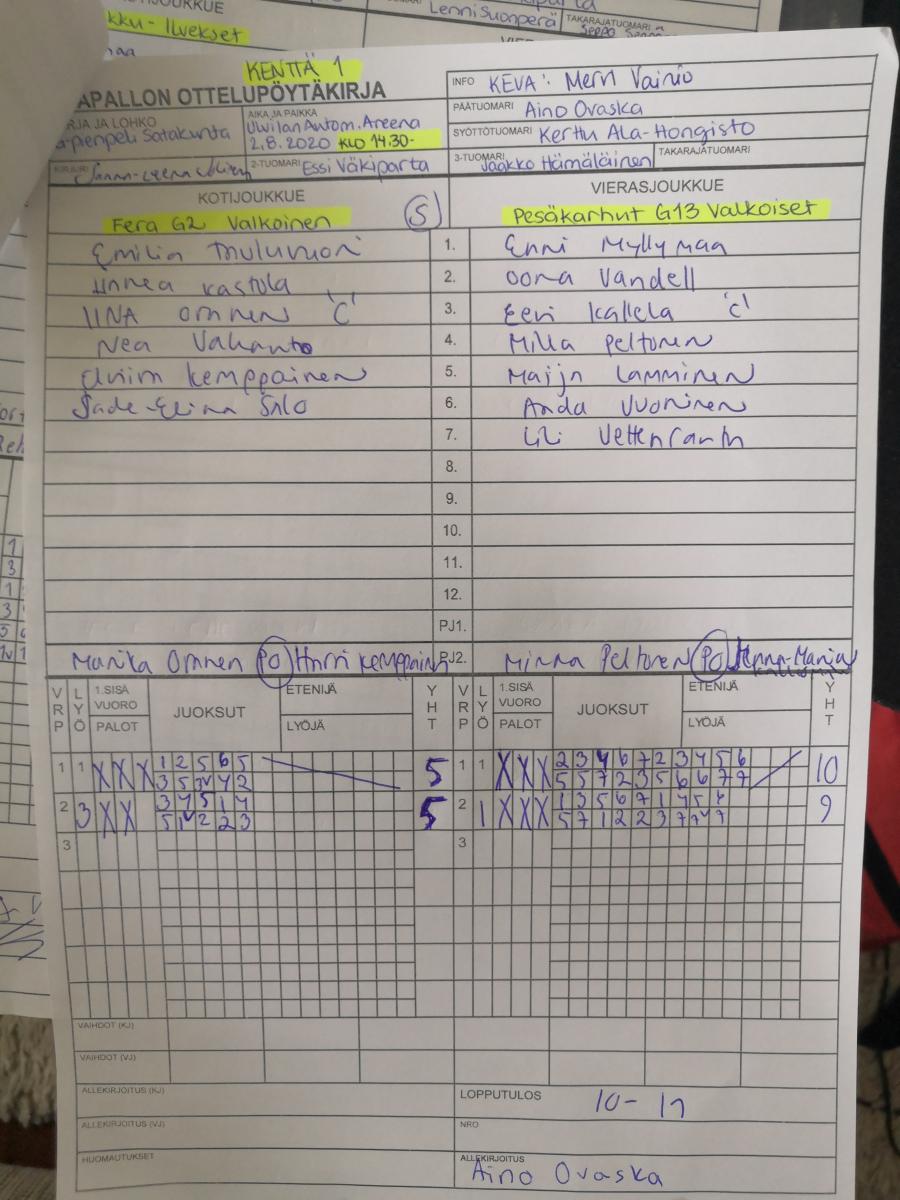 JOUKKUE
kku- Ilvekset
Lenni Suonperä
TAKARAJATUOMARI
KENTTÄ 1
APALLON OTTELUPÖYTÄKIRJA
INFO KEVA: Mervi Vainio
RJA JA LOHKO
pienpeli Satakunta
AIKA JA PAIKKA
Uwilan Autom. Areena
2.8.2020 KLO 14.30-
PÄÄTUOMARI Aino Ovaska
SYÖTTÖTUOMARI Kerttu Ala-Hongisto
KIRJURI
2-TUOMARI Essi Väkiparta
3-TUOMARI Jaakko Hämäläinen
TAKARAJATUOMARI
KOTIJOUKKUE
VIERASJOUKKUE
Fera G2 Valkoinen S
Pesäkarhut G13 Valkoiset
Emilia 1. Enni Myllymaa
Linnea Kastola 2. Oona Vandell
IINA Ominen 'C' 3. Eevi Kallela 'C'
Nea 4. Milla Peltonen
Kemppainen 5. Maija Lamminen
Jade-Elina Salo 6. Anda Vuorinen
7. Lili Vettenranta
8.
9.
10.
11.
12.
PJ1.
Manka Ominen PO Harri Kemppainen PJ2. Minna Peltonen PO Jenna-Marja
VRP LYÖ 1.SISÄ VUORO PALOT JUOKSUT ETENIJÄ LYÖJÄ YHT VRP LYÖ 1.SISÄ VUORO PALOT JUOKSUT ETENIJÄ LYÖJÄ YHT
1 1 XXX 1 2 5 6 5 5 1 1 XXX 2 3 4 6 7 2 3 4 5 6 10
5 5 7 2 3 5 6 6 7 7
2 3 XX 3 4 5 1 4 5 2 1 XXX 1 3 5 6 7 1 4 5 6 9
3 3
VAIHDOT (KJ)
VAIHDOT (VJ)
ALLEKIRJOITUS (KJ)
LOPPUTULOS 10-19
ALLEKIRJOITUS (VJ)
NRO
HUOMAUTUKSET
ALLEKIRJOITUS
Aino Ovaska